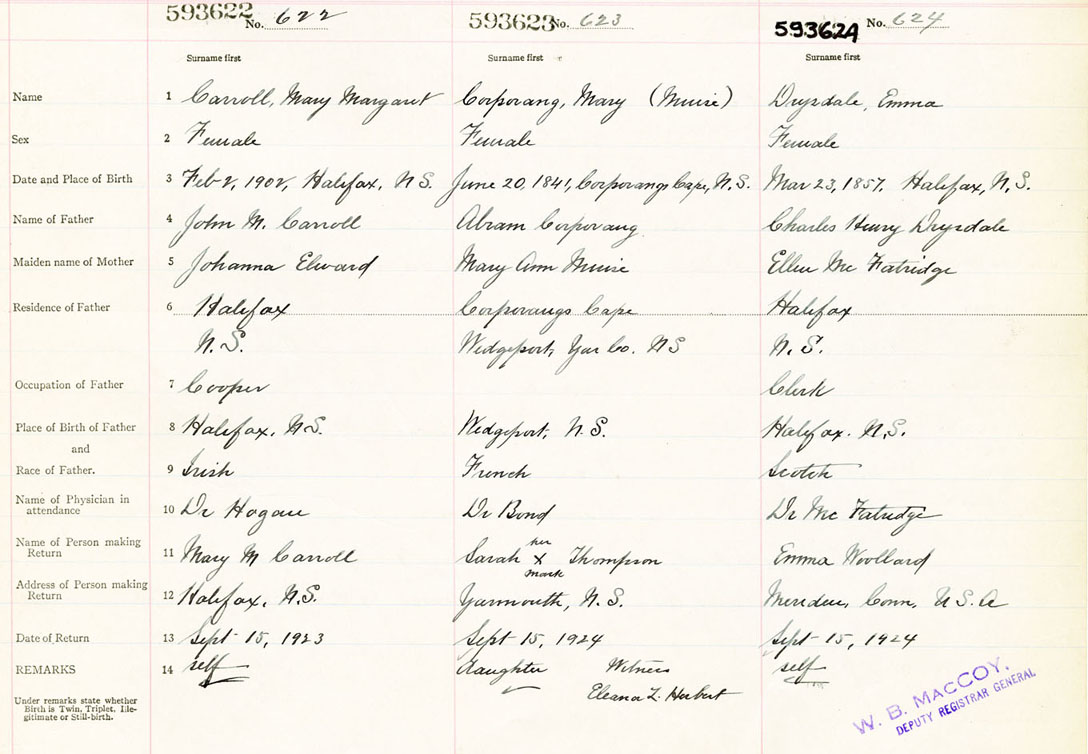 593622 No. 622
593623 No. 623
593624 No. 624
Surname first Surname first Surname first
Name 1 Carroll, Mary Margaret Corporang, Mary (Muise) Drysdale, Emma
Sex 2 Female Female Female
Date and Place of Birth 3 Feb 2, 1902, Halifax, N S. June 20, 1841, Corporangs Cape, N.S. Mar 23, 1857. Halifax, N, S.
Name of Father 4 John M. Carroll Abram Corporang Charles Henry Drysdale
Maiden name of Mother 5 Johanna Elward Mary Ann Muise Ellen Mc Fatridge
Residence of Father 6 Halifax Corporangs Cape Halifax
N.S. Wedgeport, Yar Co. NS N.S.
Occupation of Father 7 Cooper Clerk
Place of Birth of Father 8 Halifax, N.S. Wedgeport, N.S. Halifax. N.S.
and
Race of Father. 9 Irish French Scotch
Name of Physician in
attendance 10 Dr Hogan Dr Bond Dr Mc Fatridge
Name of Person making
Return 11 Mary M Carroll Sarah her X mark Thompson Emma Woollard
Address of Person making
Return 12 Halifax, N.S. Yarmouth, N.S. Meriden, Conn, U S. A
Date of Return 13 Sept 15, 1923 Sept 15, 1924 Sept 15, 1924
REMARKS 14 self daughter Witness self
Eleana L. Herbert
Under remarks state whether
Birth is Twin, Triplet, Ille-
gitimate or Still-birth.
W. B. MACCOY,
DEPUTY REGISTRAR GENERAL